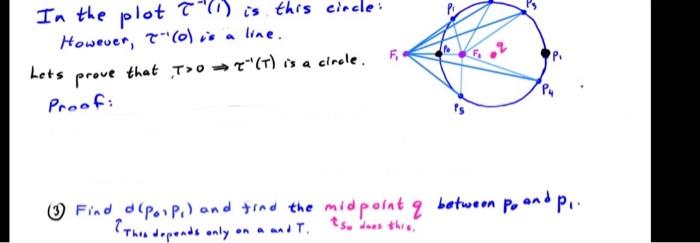 In the plot τ⁻¹(1) is this circle:
However, τ⁻¹(0) is a line.
Lets prove that T>0 ⇒ τ⁻¹(T) is a circle.
Proof:
P₁
P₃
F₁
P₀
F₂
q
P₁
P₄
P₅
③ Find d(P₀,P₁) and find the midpoint q between P₀ and P₁.
↑This depends only on a and T.
↑So does this.